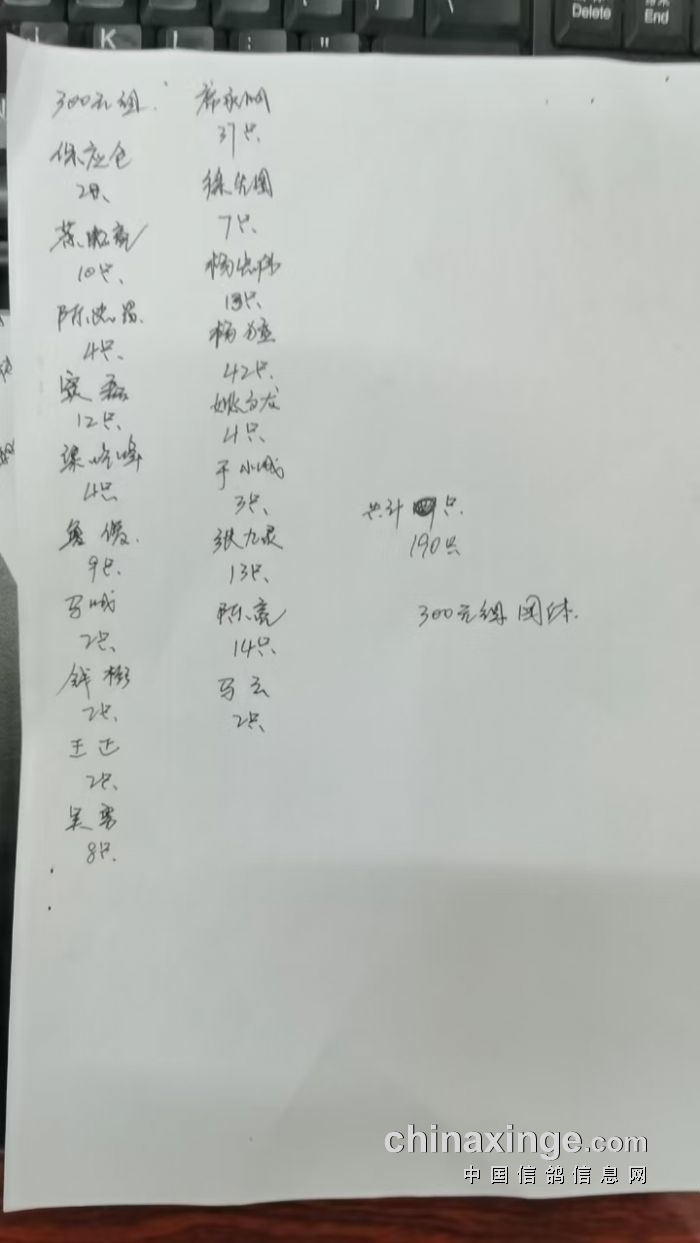 300元组.
保应仓
2只、
10只、
陈忠器.
4只、
窦磊
12只、
梁晓峰
4只
鲁俊.
9只.
马斌
2只、
钱彬
2只、
王正
2只、
吴雳
8只.
37只.
徐先国
7只、
杨忠伟
13只、
杨猛
42只.
姚白龙
4只、
于小城
3只、
张九灵
13只、
陈亮
14只、
马云
2只、
共计 只.
190只
300元组团体.
Delete
End
K
L
chinaxinge.com
中国信鸽信息网